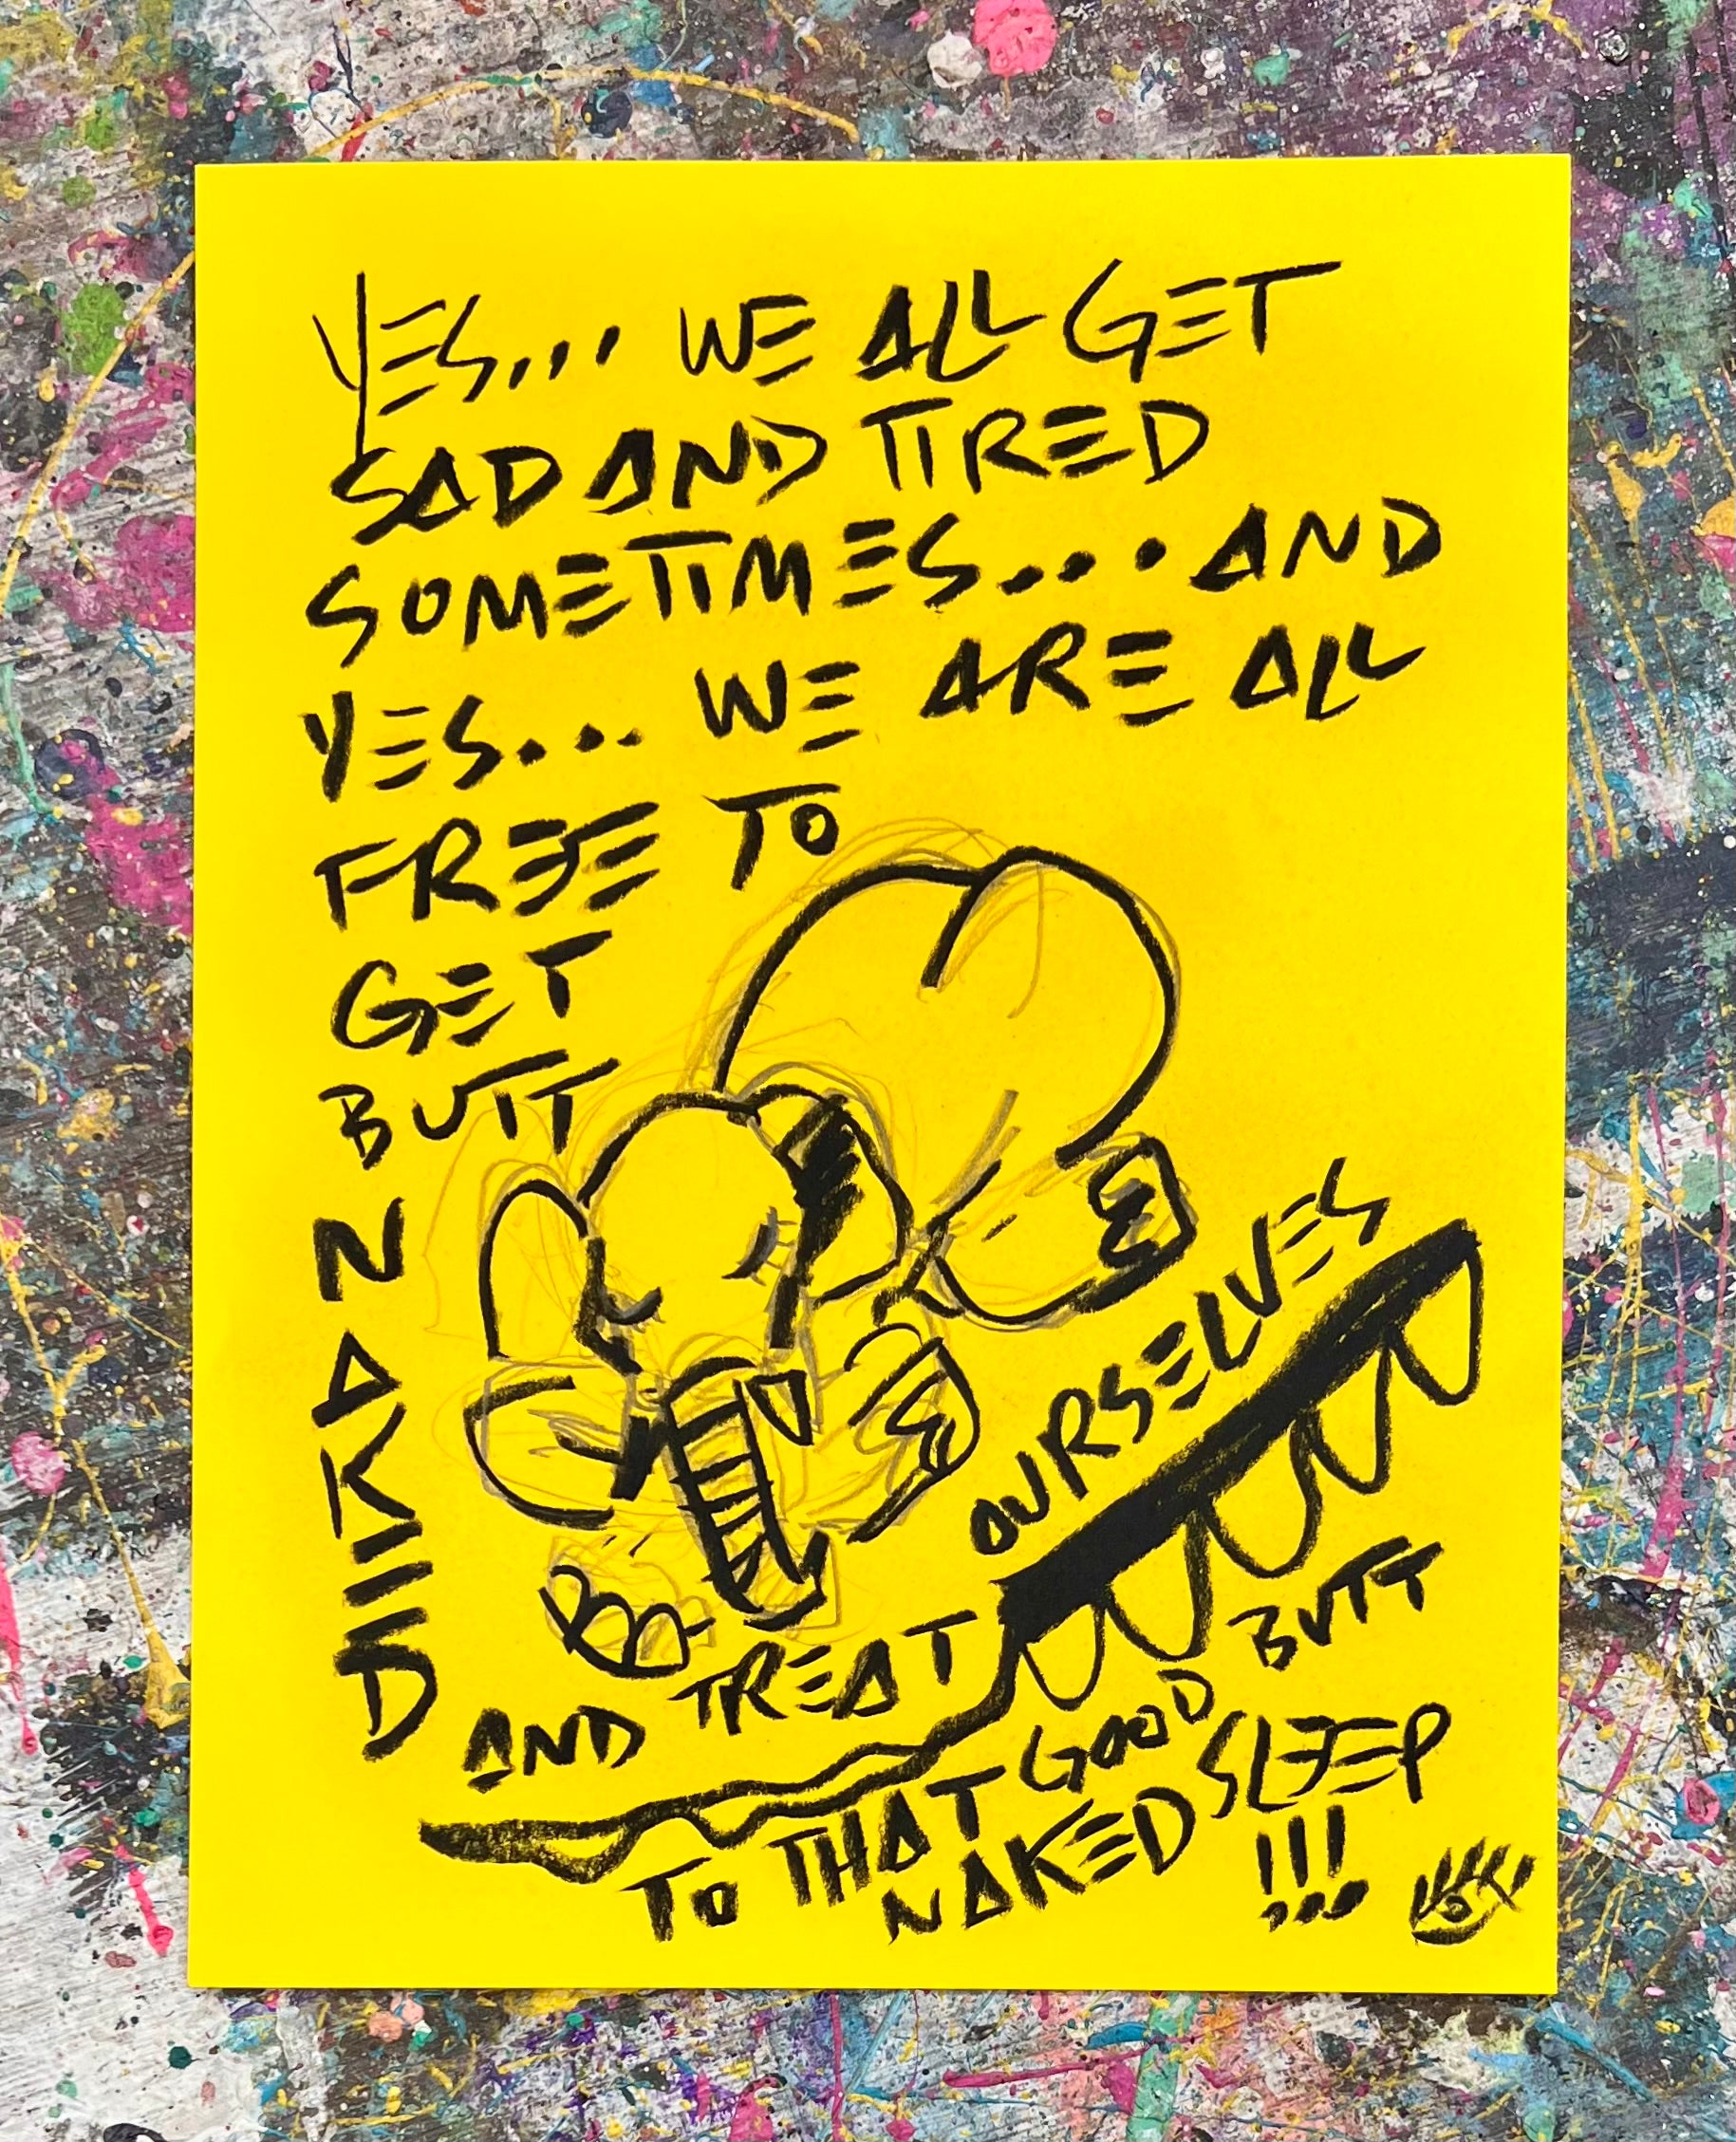 YES... WE ALL GET
SAD AND TIRED
SOMETIMES... AND
YES... WE ARE ALL
FREE TO
GET
BUTT
NAKED
AND TREAT OURSELVES
TO THAT GOOD BUTT
NAKED SLEEP
!!!